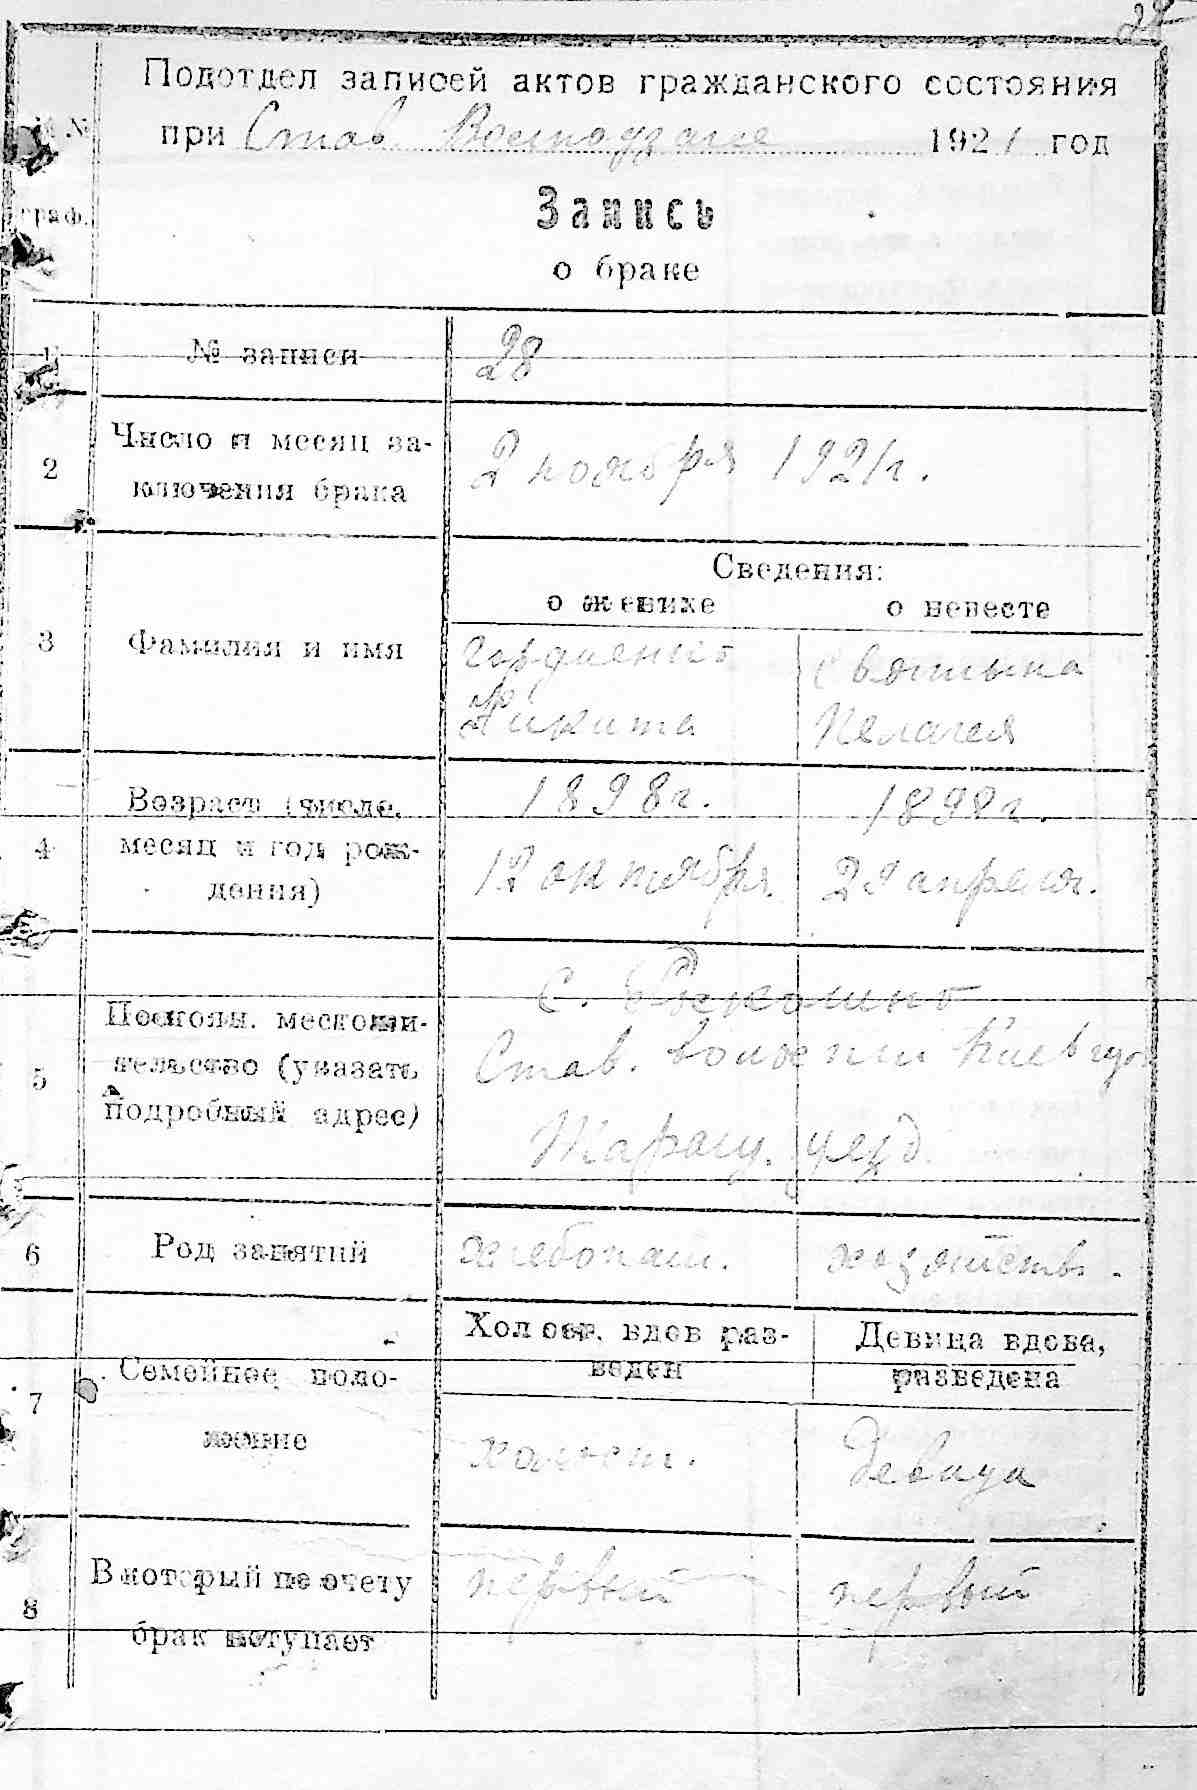 28
Подотдел записей актов гражданского состояния
№ при Став. 1921 год
граф.
Запись
о браке
1 № записи 28
2 Число и месяц за-
ключения брака 2 ноября 1921 г.
Сведения:
о женихе о невесте
3 Фамилия и имя
Гордиенко
Никита Пелагея
4 Возраст (число, 1898 г.
месяц и год рож-
дения) 12 октября. апреля.
с.
5 Постоян. местожи-
тельство (указать Став. волости Киев губ.
подробный адрес)
Таращ. уезд.
6 Род занятий хлебопаш. хозяйств.
Холост, вдов раз-
веден Девица вдова,
разведена
7 Семейное поло-
жение холост. Девица
8 В который по счету первый первый
брак вступает